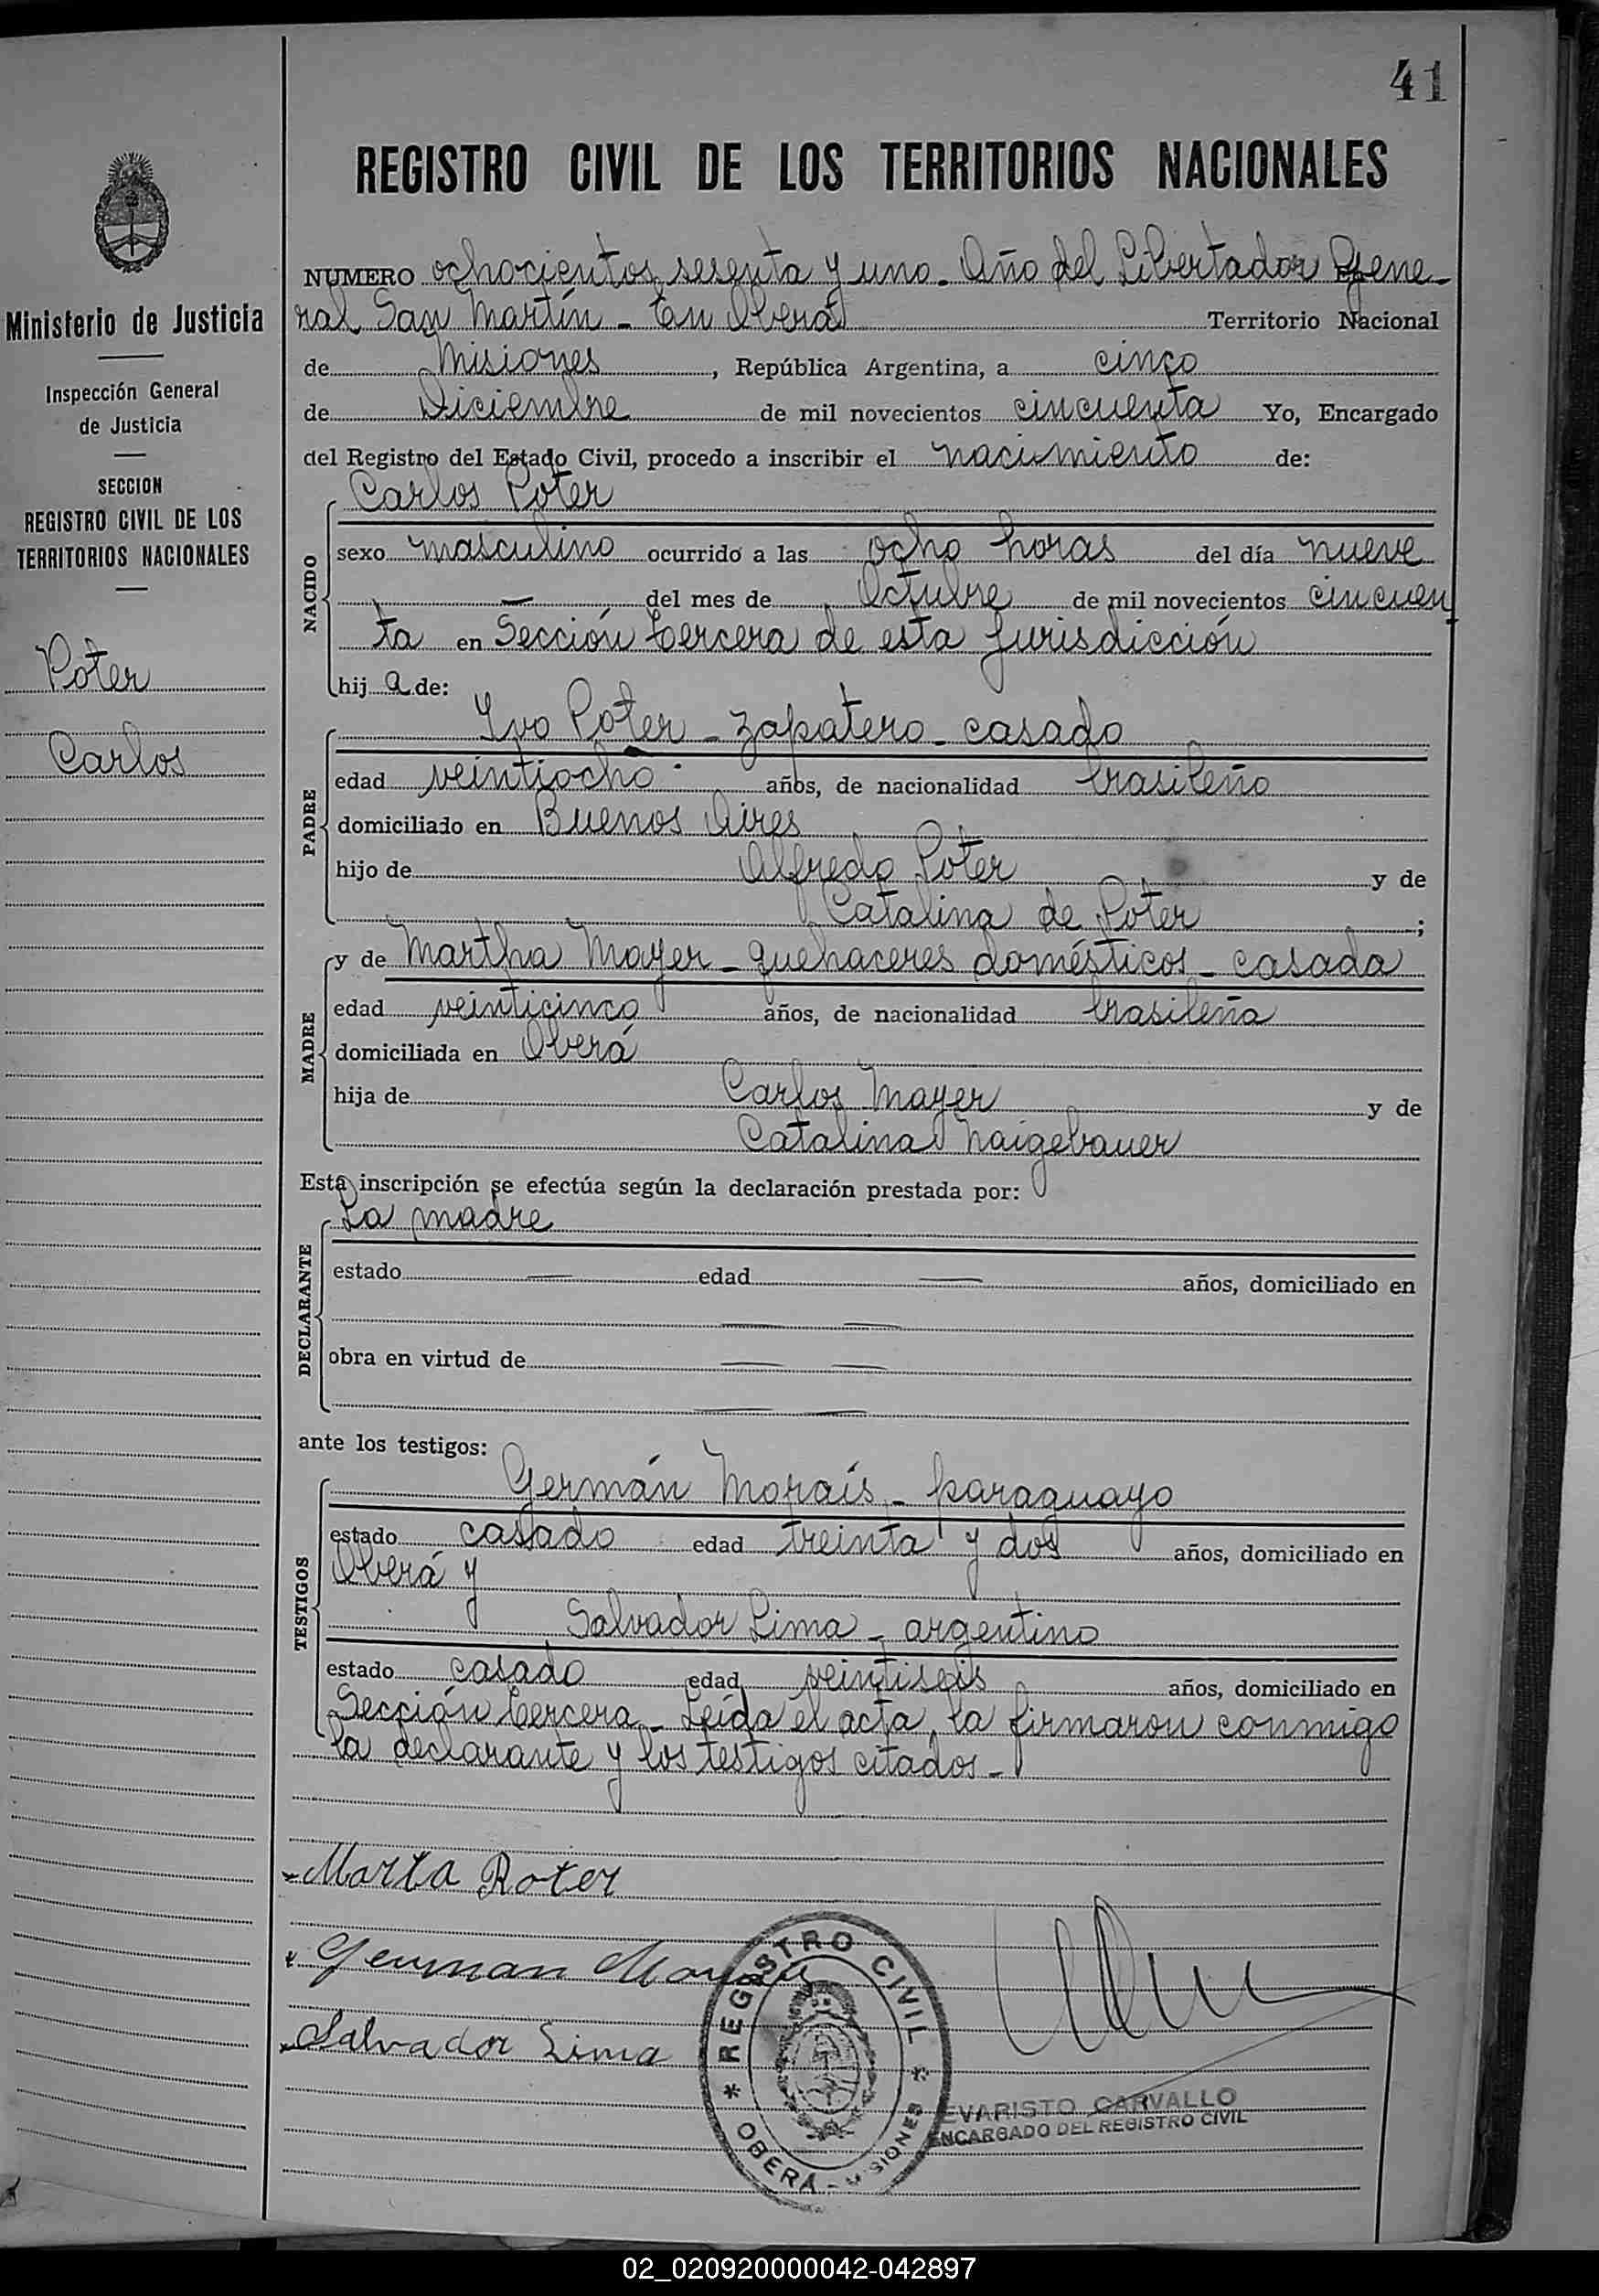 41
REGISTRO CIVIL DE LOS TERRITORIOS NACIONALES
Ministerio de Justicia
Inspección General
de Justicia
SECCION
REGISTRO CIVIL DE LOS
TERRITORIOS NACIONALES
Poter
Carlos
NUMERO ochocientos sesenta y uno - Año del Libertador Gene-
ral San Martín - En Oberá Territorio Nacional
de Misiones, República Argentina, a cinco
de Diciembre de mil novecientos cincuenta Yo, Encargado
del Registro del Estado Civil, procedo a inscribir el nacimiento de:
NACIDO
Carlos Poter
sexo masculino ocurrido a las ocho horas del día nueve
— del mes de Octubre de mil novecientos cincuen
ta en Sección tercera de esta jurisdicción
hij a de:
PADRE
Ivo Poter - zapatero - casado
edad veintiocho años, de nacionalidad brasileño
domiciliado en Buenos Aires
hijo de Alfredo Poter y de
Catalina de Poter ;
MADRE
y de Martha Mayer - quehaceres domésticos - casada
edad veinticinco años, de nacionalidad brasileña
domiciliada en Oberá
hija de Carlos Mayer y de
Catalina Naigebauer
Esta inscripción se efectúa según la declaración prestada por:
DECLARANTE
La madre
estado — edad — años, domiciliado en
— —
obra en virtud de — —
— —
ante los testigos:
TESTIGOS
Germán Morais - paraguayo
estado casado edad treinta y dos años, domiciliado en
Oberá y
Salvador Lima - argentino
estado casado edad veintiseis años, domiciliado en
Sección tercera - Leída el acta, la firmaron conmigo
la declarante y los testigos citados -
Marta Roter
German Morais
Salvador Lima
REGISTRO CIVIL
OBERÁ - MISIONES
EVARISTO CARVALLO
ENCARGADO DEL REGISTRO CIVIL
02_020920000042-042897